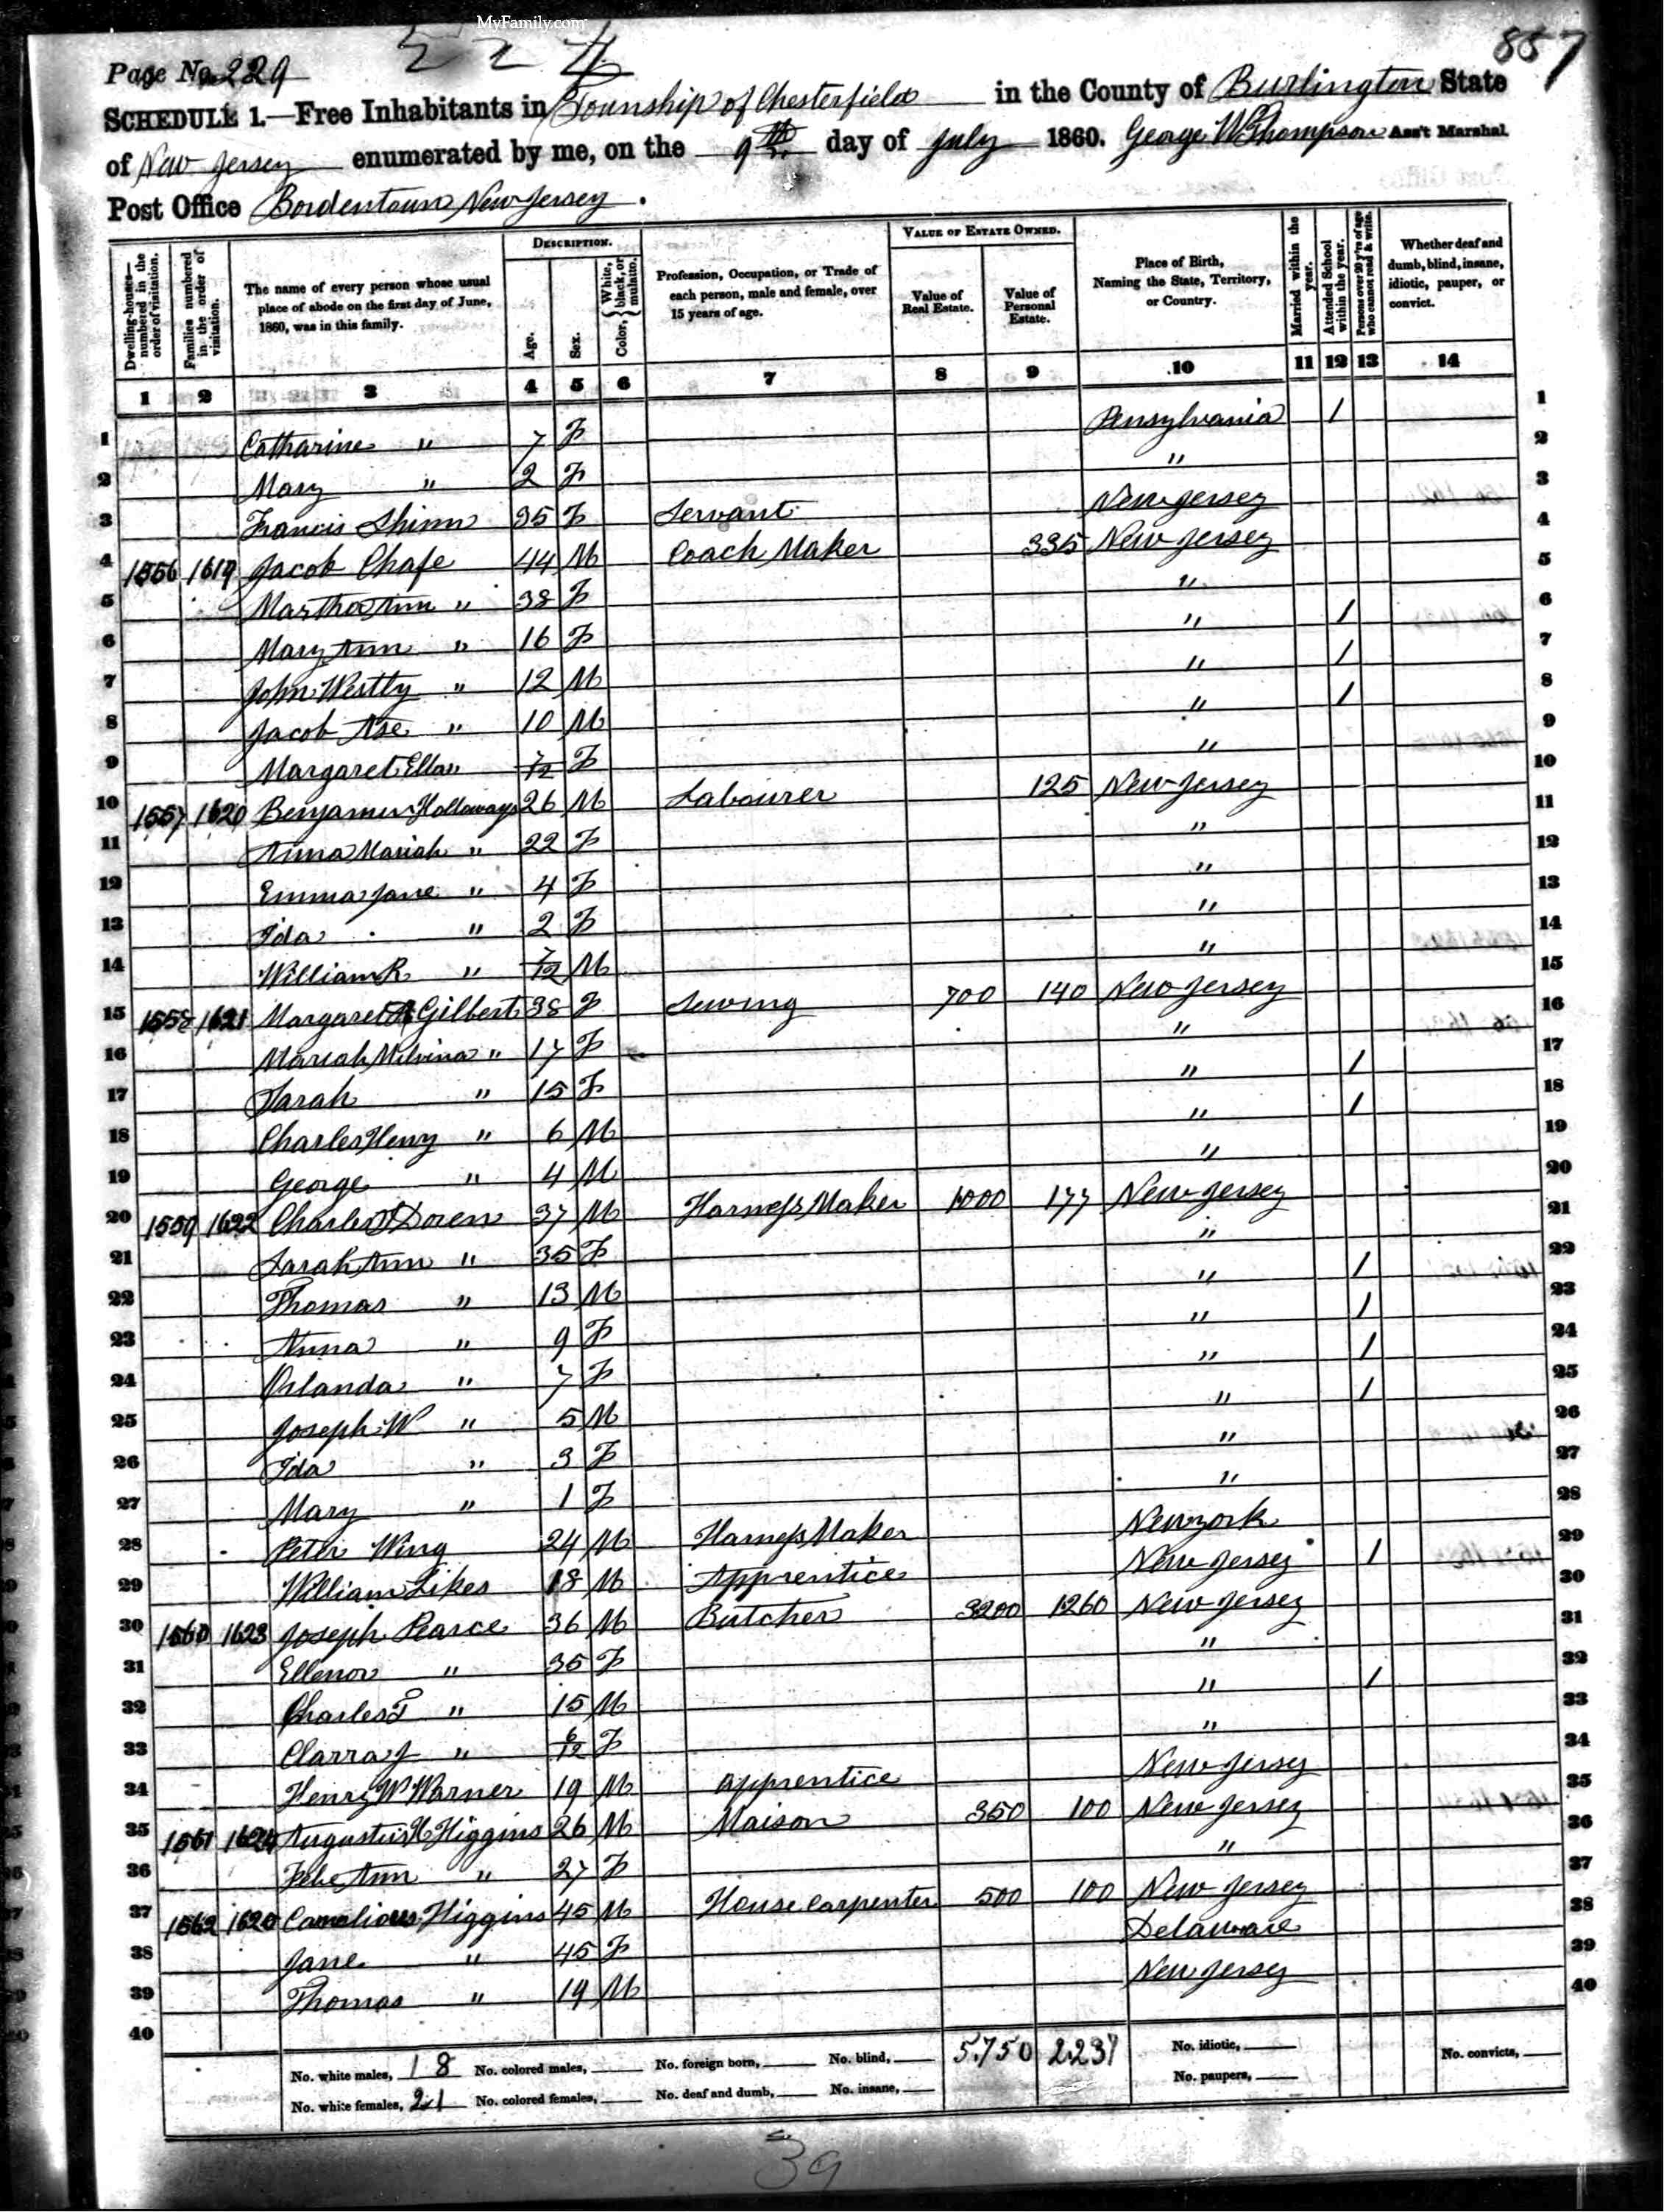 MyFamily.com
5 2 4
857
Page No. 229
SCHEDULE 1.—Free Inhabitants in Township of Chesterfield in the County of Burlington State
of New Jersey enumerated by me, on the 9th day of July 1860. George W Thompson Ass't Marshal.
Post Office Bordentown New Jersey.
Dwelling-houses—numbered in the order of visitation. Families numbered in the order of visitation. The name of every person whose usual place of abode on the first day of June, 1860, was in this family. DESCRIPTION. Age. Sex. Color, {White, black, or mulatto. Profession, Occupation, or Trade of each person, male and female, over 15 years of age. VALUE OF ESTATE OWNED. Value of Real Estate. Value of Personal Estate. Place of Birth, Naming the State, Territory, or Country. Married within the year. Attended School within the year. Persons over 20 y'rs of age who cannot read & write. Whether deaf and dumb, blind, insane, idiotic, pauper, or convict.
1 2 3 4 5 6 7 8 9 10 11 12 13 14
1 Catharine " 7 F Pensylvania / 1
2 Mary " 2 F " 2
3 Francis Shinn 35 F Servant New Jersey 3
4 1556 1619 Jacob Chafe 44 M Coach Maker 335 New Jersey 4
5 Martha Ann " 38 F " 5
6 Mary Ann " 16 F " / 6
7 John Westly " 12 M " / 7
8 Jacob " 10 M " / 8
9 Margaret Ella " 7/12 F " 9
10 1557 1620 Benjamin Holloway 26 M Labourer 125 New Jersey 10
11 Anna Mariah " 22 F " 11
12 Emma Jane " 4 F " 12
13 Ida " 2 F " 13
14 William R " 7/12 M " 14
15 1558 1621 Margaret A Gilbert 38 F Sewing 700 140 New Jersey 15
16 Mariah Melvina " 17 F " 16
17 Sarah " 15 F " / 17
18 Charles Henry " 6 M " / 18
19 George " 4 M " 19
20 1559 1622 Charles Doren 37 M Harness Maker 1000 177 New Jersey 20
21 Sarah Ann " 35 F " 21
22 Thomas " 13 M " / 22
23 Anna " 9 F " / 23
24 Orlanda " 7 F " / 24
25 Joseph W " 5 M " / 25
26 Ida " 3 F " 26
27 Mary " 1 F " 27
28 Peter Wing 24 M Harness Maker New york 28
29 William Sikes 18 M Apprentice New Jersey / 29
30 1560 1623 Joseph Pearce 36 M Butcher 3200 1260 New Jersey 30
31 Ellenor " 35 F " 31
32 Charles T " 15 M " / 32
33 Clarra J " 6/12 F " 33
34 Henry W Warner 19 M apprentice New Jersey 34
35 1561 1624 Augustus H Higgins 26 M Maison 350 100 New Jersey 35
36 Febe Ann " 27 F " 36
37 1562 1625 Higgins 45 M House Carpenter 500 100 New Jersey 37
38 Jane " 45 F Delaware 38
39 Thomas " 19 M New Jersey 39
40 40
No. white males, 18 No. colored males, No. foreign born, No. blind, 5,750 2237 No. idiotic, No. convicts,
No. white females, 21 No. colored females, No. deaf and dumb, No. insane, No. paupers,
39